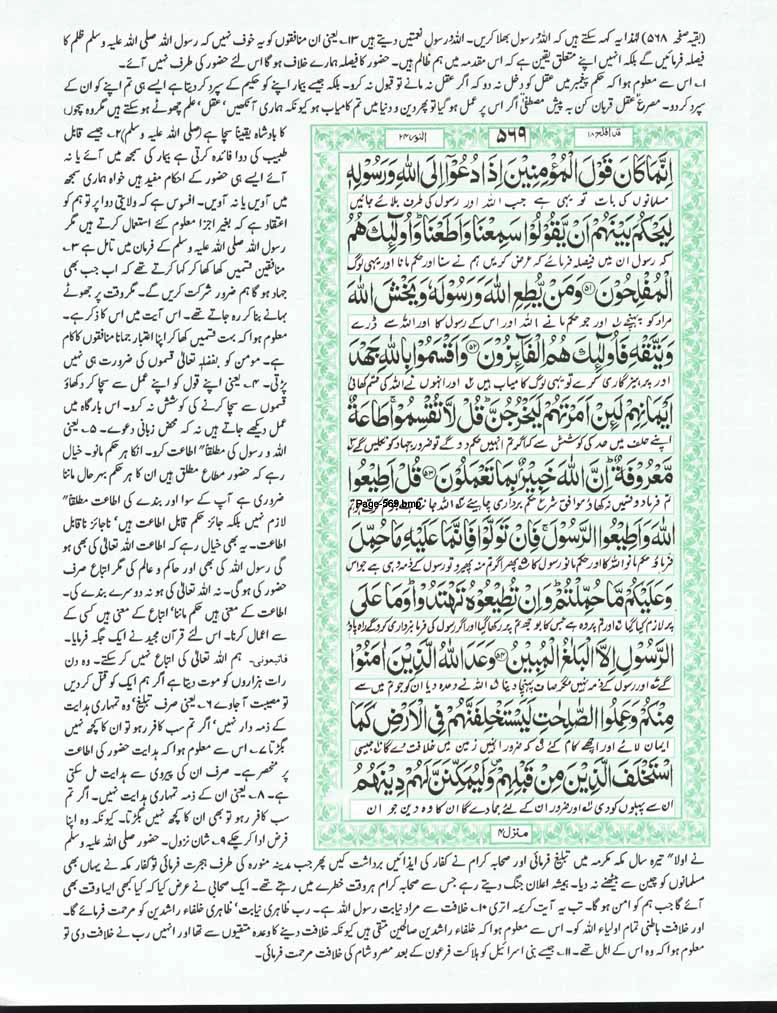 (بقیہ صفحہ ۵۶۸) لہٰذا یہ کہہ سکتے ہیں کہ اللہ رسول بھلا کریں۔ اللہ رسول نعمتیں دیتے ہیں ۱۳۔ یعنی ان منافقوں کو یہ خوف نہیں کہ رسول اللہ صلی اللہ علیہ وسلم ظلم کا
فیصلہ فرمائیں گے بلکہ انہیں اپنے متعلق یقین ہے کہ اس مقدمہ میں ہم ظالم ہیں۔ حضور کا فیصلہ ہمارے خلاف ہو گا اس لئے حضور کی طرف نہیں آئے۔
۱۔ اس سے معلوم ہوا کہ حکم پیغمبر میں عقل کو دخل نہ دو کہ اگر عقل نہ مانے تو قبول نہ کرو۔ بلکہ جیسے بیمار اپنے کو حکیم کے سپرد کر دیتا ہے ایسے ہی تم اپنے کو ان کے
سپرد کر دو۔ مصرع عقل قربان کن بہ پیش مصطفیٰ اگر اس پر عمل ہو گیا تو پھر دین و دنیا میں تم کامیاب ہو کیونکہ ہماری آنکھیں، عقل، علم جھوٹے ہو سکتے ہیں مگر وہ سچوں
کا بادشاہ یقیناً سچا ہے (صلی اللہ علیہ وسلم) ۲۔ جیسے قابل
طبیب کی دوا فائدہ کرتی ہے بیمار کی سمجھ میں آئے یا نہ
آئے ایسے ہی حضور کے احکام مفید ہیں خواہ ہماری سمجھ
میں آویں یا نہ آویں۔ افسوس ہے کہ ولایتی دوا پر تو ہم کو
اعتقاد ہے کہ بغیر اجزا معلوم کئے استعمال کرتے ہیں مگر
رسول اللہ صلی اللہ علیہ وسلم کے فرمان میں تامل ہے ۳۔
منافقین قسمیں کھا کھا کر کہا کرتے تھے کہ اب جب بھی
جہاد ہو گا ہم ضرور شرکت کریں گے۔ مگر وقت پر جھوٹے
بہانے بنا کر رہ جاتے تھے۔ اس آیت میں اس کا ذکر ہے۔
معلوم ہوا کہ بہت قسمیں کھا کر اپنا اعتبار جمانا منافقوں کا کام
ہے۔ مومن کو بفضلہ تعالیٰ قسموں کی ضرورت ہی نہیں
پڑتی۔ ۴۔ یعنی اپنے قول کو اپنے عمل سے سچا کر دکھاؤ
قسموں سے سچا کرنے کی کوشش نہ کرو۔ اس بارگاہ میں
عمل دیکھے جاتے ہیں نہ کہ محض زبانی دعوے۔ ۵۔ یعنی
اللہ و رسول کی مطلقاً اطاعت کرو۔ انکا ہر حکم مانو۔ خیال
رہے کہ حضور مطاع مطلق ہیں ان کا ہر حکم بہرحال ماننا
ضروری ہے آپ کے سوا اور بندے کی اطاعت مطلقاً
لازم نہیں بلکہ جائز حکم قابل اطاعت ہیں، ناجائز ناقابل
اطاعت۔ یہ بھی خیال رہے کہ اطاعت اللہ تعالیٰ کی بھی ہو
گی رسول اللہ کی بھی اور حاکم و عالم کی مگر اتباع صرف
حضور کی ہو گی۔ نہ اللہ تعالیٰ کی ہو نہ دوسرے بندے کی۔
اطاعت کے معنی ہیں حکم ماننا، اتباع کے معنی ہیں کسی کے
سے اعمال کرنا۔ اس لئے قرآن مجید نے ایک جگہ فرمایا۔
فاتبعونی۔ ہم اللہ تعالیٰ کی اتباع نہیں کر سکتے۔ وہ دن
رات ہزاروں کو موت دیتا ہے اگر ہم ایک کو قتل کر دیں
تو مصیبت آ جاوے ۶۔ یعنی صرف تبلیغ، وہ تمہاری ہدایت
کے ذمہ دار نہیں، اگر تم سب کافر رہو تو ان کا کچھ نہیں
بگڑتا ۷۔ اس سے معلوم ہوا کہ ہدایت حضور کی اطاعت
پر منحصر ہے۔ صرف ان کی پیروی سے ہدایت مل سکتی
ہے۔ ۸۔ یعنی ان کے ذمہ تمہاری ہدایت نہیں۔ اگر تم
سب کافر رہو تو بھی ان کا کچھ نہیں بگڑتا۔ کیونکہ وہ اپنا
فرض ادا کر چکے ۹۔ شان نزول۔ حضور صلی اللہ علیہ وسلم
قد افلح ۱۸
۵۶۹
النور ۲۴
اِنَّمَا كَانَ قَوْلَ الْمُؤْمِنِيْنَ اِذَا دُعُوْٓا اِلَى اللّٰهِ وَرَسُوْلِهٖ
مسلمانوں کی بات تو یہی ہے جب اللہ اور رسول کی طرف بلائے جائیں
لِيَحْكُمَ بَيْنَهُمْ اَنْ يَّقُوْلُوْا سَمِعْنَا وَاَطَعْنَا وَاُولٰٓئِكَ هُمُ
کہ رسول ان میں فیصلہ فرمائے کہ عرض کریں ہم نے سنا اور حکم مانا اور یہی لوگ
الْمُفْلِحُوْنَ ۵۱ وَمَنْ يُّطِعِ اللّٰهَ وَرَسُوْلَهٗ وَيَخْشَ اللّٰهَ
مراد کو پہنچے اور جو حکم مانے اللہ اور اس کے رسول کا اور اللہ سے ڈرے
وَيَتَّقْهِ فَاُولٰٓئِكَ هُمُ الْفَآئِزُوْنَ ۵۲ وَاَقْسَمُوْا بِاللّٰهِ جَهْدَ
اور پرہیزگاری کرے تو یہی لوگ کامیاب ہیں اور انہوں نے اللہ کی قسم کھائی
اَيْمَانِهِمْ لَئِنْ اَمَرْتَهُمْ لَيَخْرُجُنَّ قُلْ لَّا تُقْسِمُوْا طَاعَةٌ
اپنے حلف میں حد کی کوشش سے کہ اگر تم انہیں حکم دو گے تو ضرور جہاد کو نکلیں گے
مَّعْرُوْفَةٌ اِنَّ اللّٰهَ خَبِيْرٌۢ بِمَا تَعْمَلُوْنَ ۵۳ قُلْ اَطِيْعُوا
تم فرماؤ قسمیں نہ کھاؤ موافق شرع حکم برداری چاہیئے اللہ جانتا ہے
Page-569.bmp
اللّٰهَ وَاَطِيْعُوا الرَّسُوْلَ فَاِنْ تَوَلَّوْا فَاِنَّمَا عَلَيْهِ مَا حُمِّلَ
فرماؤ حکم مانو اللہ کا اور حکم مانو رسول کا پھر اگر تم منہ پھیرو تو رسول کے ذمہ وہی ہے جو اس
وَعَلَيْكُمْ مَّا حُمِّلْتُمْ وَاِنْ تُطِيْعُوْهُ تَهْتَدُوْا وَمَا عَلَى
پر لازم کیا گیا اور تم پر وہ ہے جس کا بوجھ تم پر رکھا گیا اور اگر رسول کی فرمانبرداری کرو گے راہ پاؤ
الرَّسُوْلِ اِلَّا الْبَلٰغُ الْمُبِيْنُ ۵۴ وَعَدَ اللّٰهُ الَّذِيْنَ اٰمَنُوْا
گے اور رسول کے ذمہ نہیں مگر صاف پہنچا دینا اللہ نے وعدہ دیا ان کو جو تم میں سے
مِنْكُمْ وَعَمِلُوا الصّٰلِحٰتِ لَيَسْتَخْلِفَنَّهُمْ فِي الْاَرْضِ كَمَا
ایمان لائے اور اچھے کام کئے کہ ضرور انہیں زمین میں خلافت دے گا جیسی
اسْتَخْلَفَ الَّذِيْنَ مِنْ قَبْلِهِمْ وَلَيُمَكِّنَنَّ لَهُمْ دِيْنَهُمُ
ان سے پہلوں کو دی اور ضرور ان کے لئے جما دے گا ان کا وہ دین جو ان
منزل ۴
نے اولاً تیرہ سال مکہ مکرمہ میں تبلیغ فرمائی اور صحابہ کرام نے کفار کی ایذائیں برداشت کیں پھر جب مدینہ منورہ کی طرف ہجرت فرمائی تو کفار مکہ نے یہاں بھی
مسلمانوں کو چین سے بیٹھنے نہ دیا۔ ہمیشہ اعلان جنگ دیتے رہے جس سے صحابہ کرام ہر وقت خطرے میں رہتے تھے۔ ایک صحابی نے عرض کیا کہ کیا کبھی ایسا وقت بھی
آئے گا جب ہم کو امن ہو گا۔ تب یہ آیت کریمہ اتری ۱۰۔ خلافت سے مراد نیابت رسول اللہ ہے۔ رب ظاہری نیابت، ظاہری خلفاء راشدین کو مرحمت فرمائے گا۔
اور خلافت باطنی تمام اولیاء اللہ کو۔ اس سے معلوم ہوا کہ خلفاء راشدین صالحین متقی ہیں کیونکہ خلافت دینے کا وعدہ متقیوں سے تھا اور انہیں رب نے خلافت دی تو
معلوم ہوا کہ وہ اس کے اہل تھے۔ ۱۱۔ جیسے بنی اسرائیل کو ہلاکت فرعون کے بعد مصر و شام کی خلافت مرحمت فرمائی۔